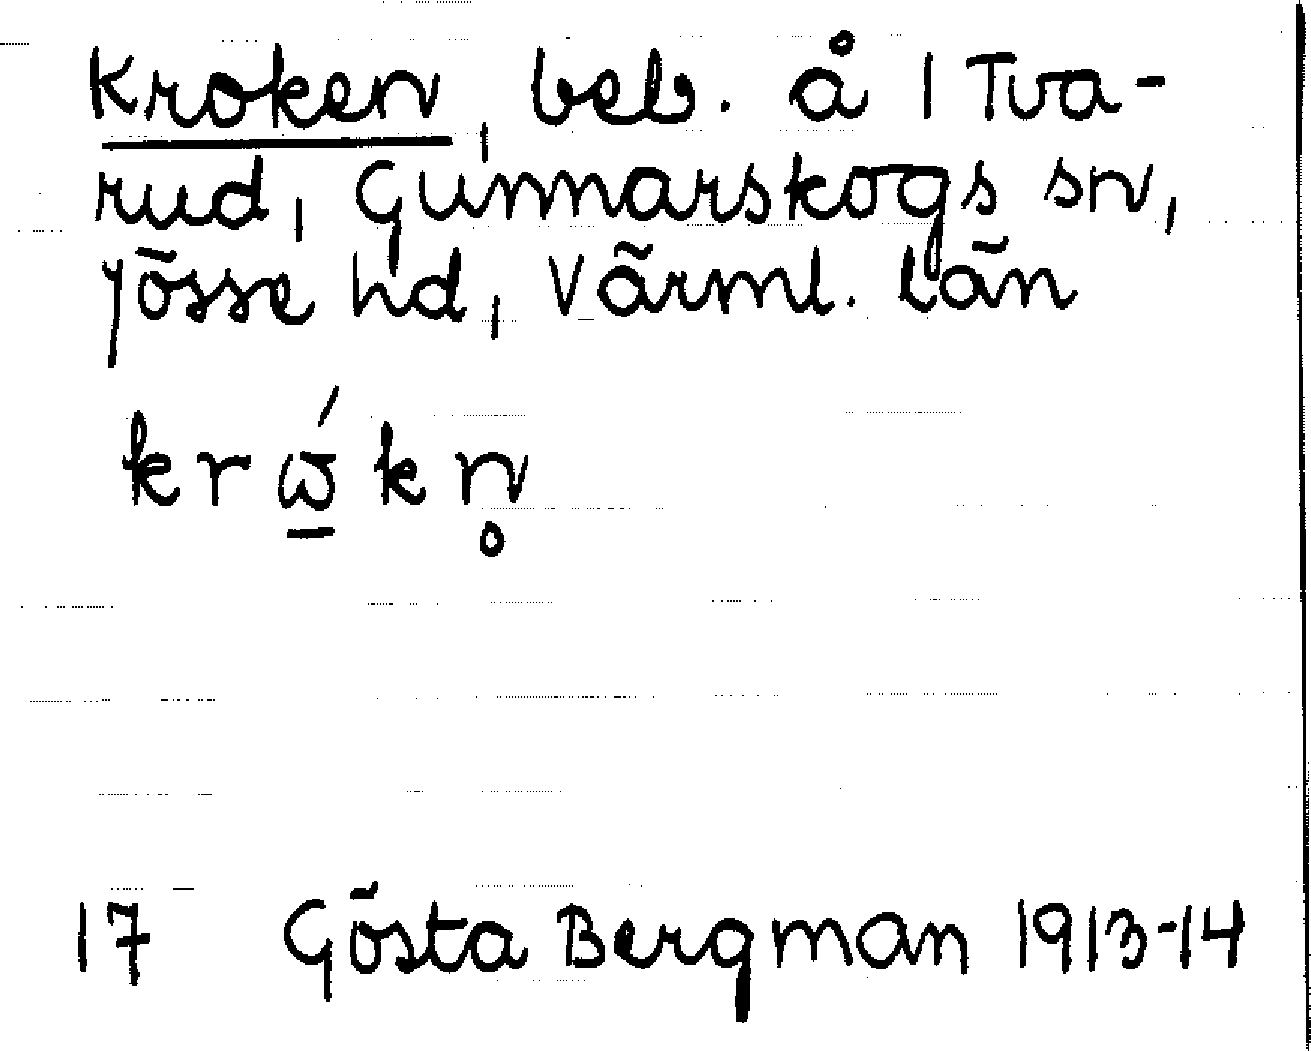 Kroken, beb. å 1 Tva-
rud, Gunnarskogs sn,
Jösse hd, Värml. län
krώ̲kn̥
17 Gösta Bergman 1913-14